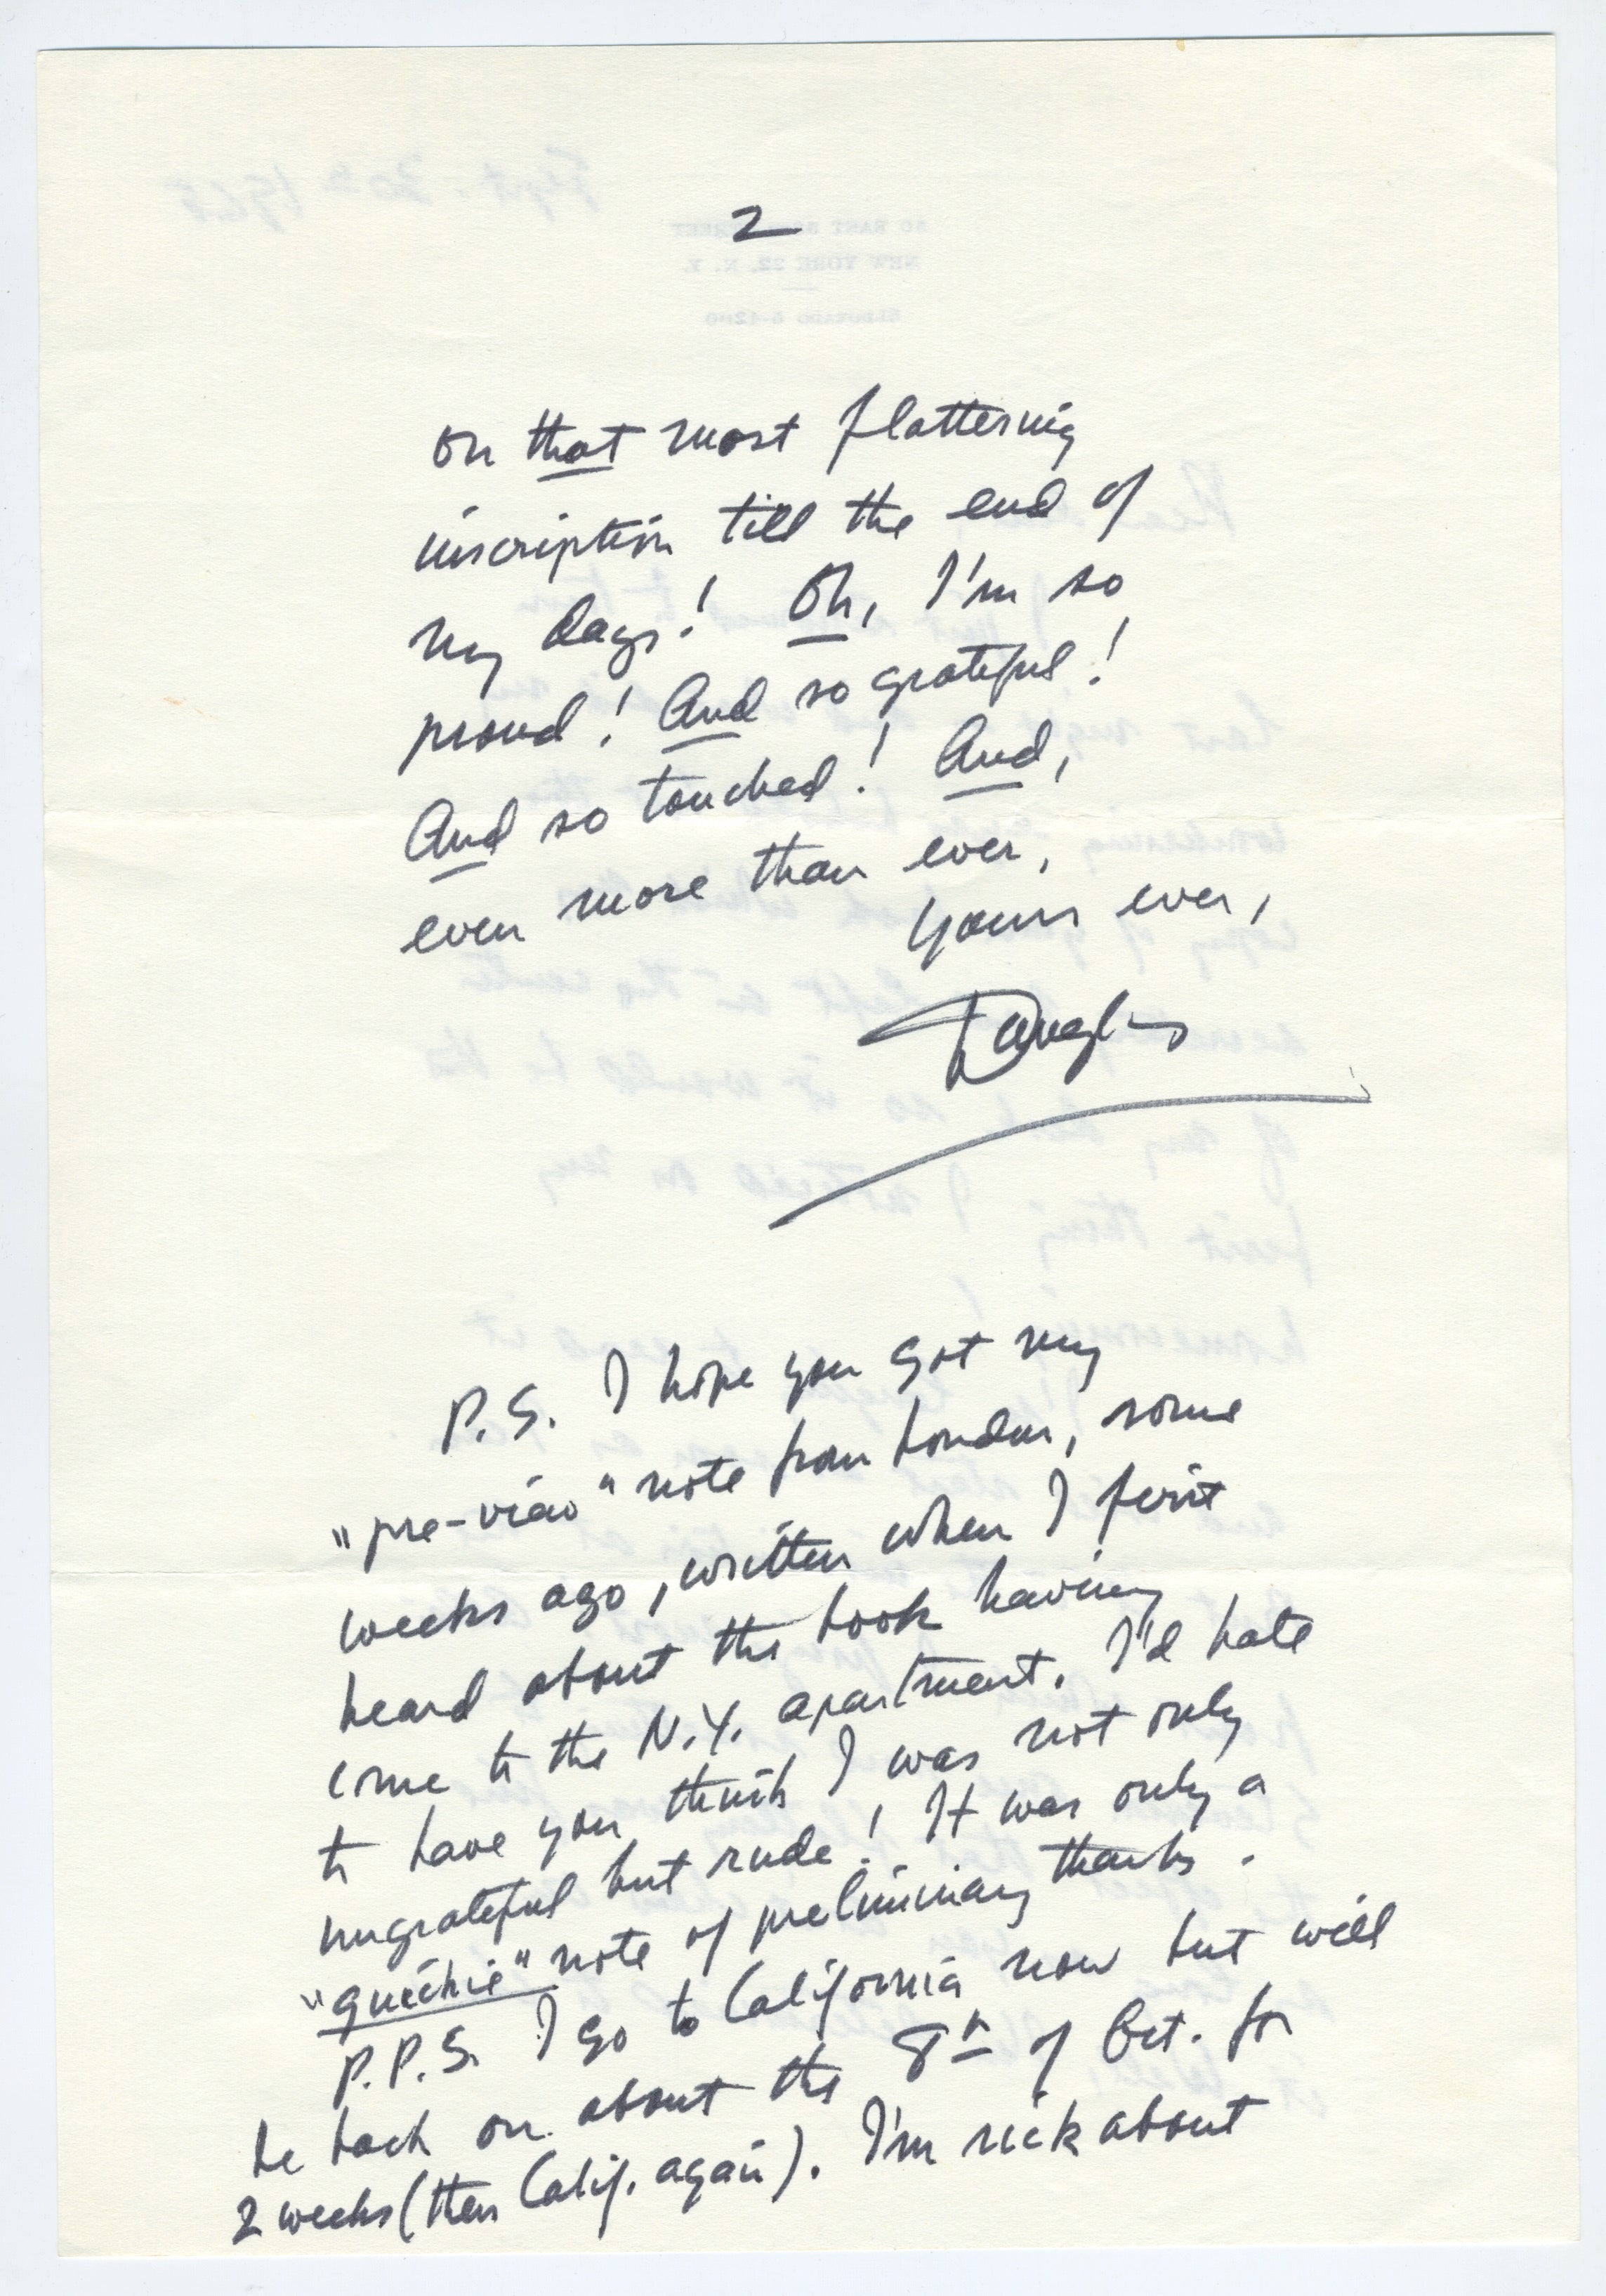 2
on that most flattering
inscription till the end of
my days! Oh, I'm so
proud! And so grateful!
And so touched! And,
even more than ever,
Yours ever,
Douglas
P.S. I hope you got my
"pre-view" note from London, some
weeks ago, written when I first
heard about the book having
come to the N.Y. apartment. I'd hate
to have you think I was not only
ungrateful but rude! It was only a
"quickie" note of preliminary thanks.
P.P.S. I go to California now but will
be back on about the 8th of Oct. for
2 weeks (then Calif. again). I'm sick about